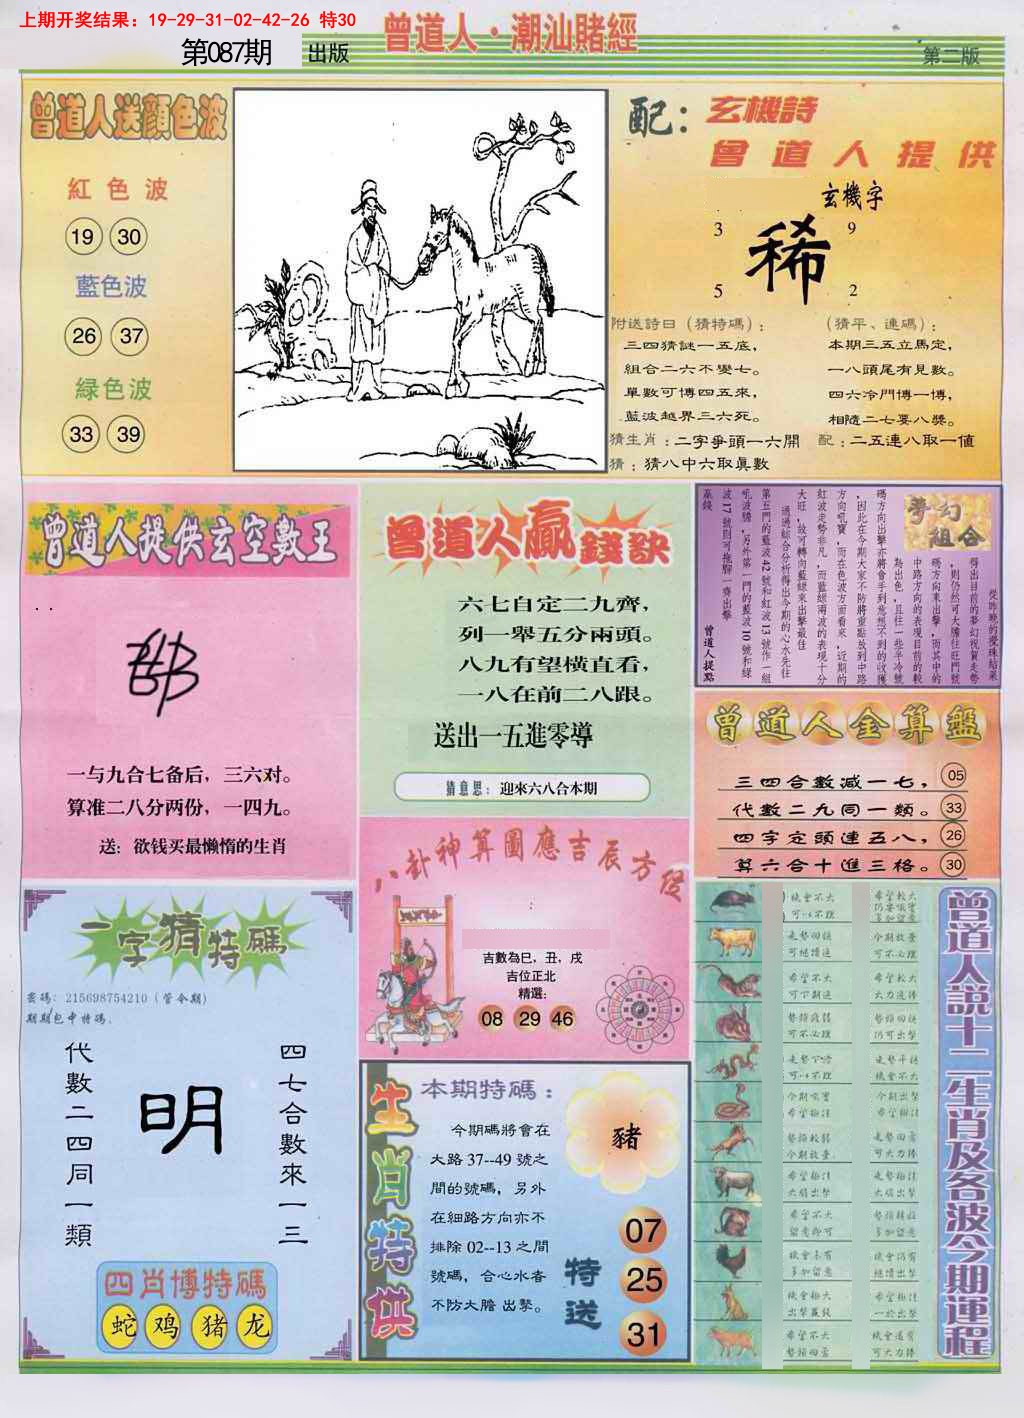 上期开奖结果：19-29-31-02-42-26 特30
曾道人·潮汕賭經
第087期
出版
第二版
曾道人送顏色波
紅色波
19 30
藍色波
26 37
緑色波
33 39
配：
玄機詩
曾道人提供
玄機字
3 9
稀
5 2
附送詩曰（猜特碼）：
三四猜謎一五底，
組合二六不變七。
單數可博四五來，
藍波越界三六死。
（猜平、連碼）：
本期三五立馬定，
一八頭尾有見數。
四六冷門博一博，
相隨二七要八獎。
猜生肖：二字爭頭一六開
配：二五連八取一値
猜：猜八中六取眞數
曾道人提供玄空數王
一与九合七备后，三六对。
算准二八分两份，一四九。
送：欲钱买最懒惰的生肖
曾道人贏錢訣
六七自定二九齊，
列一舉五分兩頭。
八九有望橫直看，
一八在前二八跟。
送出一五進零導
猜意思：迎來六八合本期
夢幻組合
從昨晚的攪珠結果
得出目前的夢幻祝賀走勢
，則仍然可大膽往旺門號
碼方向來出擊，而其中的
中路方向的表現目前的較
為出色，且往一些半冷號
碼方向出擊亦將會手到意想不到的收獲
，因此在今期大家不防將重點放到中路
方向吼實，而在色波方面看來，近期的
紅波走勢非凡，而藍綠兩波的表現十分
大旺，故可轉向藍綠來出擊最佳
通過綜合分析得出今期的心水先往
第五門的藍波42號和紅波13號作一組
吼波膽，另外第一門的藍波10號和綠
波17號則可拖膽一齊出擊
贏錢
曾道人提點
曾道人金算盤
三四合數減一七，05
代數二九同一類。33
四字定頭連五八，26
算六合十進三格。30
八卦神算圖應吉辰方位
吉數為巳，丑，戌
吉位正北
精選：
08 29 46
一字猜特碼
密碼：215698754210（管令期）
期期包中特碼.
代數二四同一類
明
四七合數來一三
四肖博特碼
蛇 鸡 猪 龙
生肖特供
本期特碼：
今期碼將會在
大路 37--49 號之
間的號碼，另外
在細路方向亦不
排除 02--13 之間
號碼，合心水者
不防大膽 出擊。
豬
特送
07
25
31
曾道人説十二生肖及各波今期運程